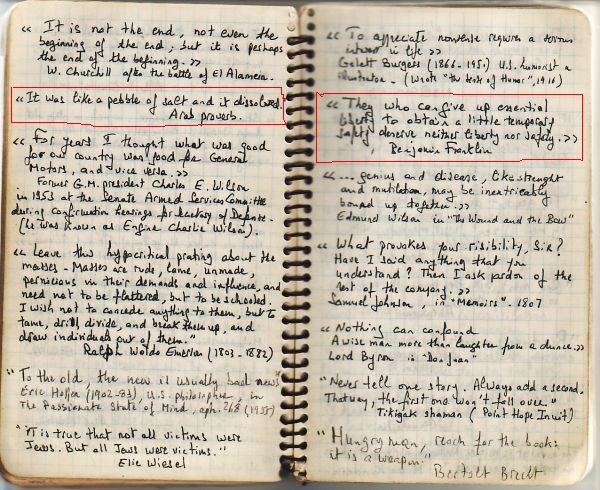 « It is not the end, not even the
beginning of the end; but it is perhaps
the end of the beginning. »
W. Churchill after the battle of El Alamein.
« It was like a pebble of salt and it dissolved"
Arab proverb.
« For years I thought what was good
for our country was good for General
Motors, and vice versa. »
Former G.M. president Charles E. Wilson
in 1953 at the Senate Armed Services Committee
during confirmation hearings for Secretary of Defense.
(he was known as Engine Charlie Wilson).
« Leave this hypocritical prating about the
masses - Masses are rude, lame, unmade,
pernicious in their demands and influence, and
need not to be flattered, but to be schooled.
I wish not to concede anything to them, but to
tame, drill, divide, and break them up, and
draw individuals out of them."
Ralph Waldo Emerson (1803 - 1882)
"To the old, the new is usually bad news"
Eric Hoffer (1902-83), U.S. philosopher, in
The Passionate State of Mind, aph. 268 (1955)
"It is true that not all victims were
Jews. But all Jews were victims."
Elie Wiesel
« To appreciate nonsense requires a serious
interest in life »
Gelett Burgess (1866-1951) U.S. humorist a
illustrator. (Wrote "the sense of Humor", 1916)
« They who can give up essential
liberty to obtain a little temporary
safety deserve neither liberty nor safety. »
Benjamin Franklin
« ... genius and disease, like strenght
and mutilation, may be inextricably
bound up together »
Edmund Wilson in "The Wound and the Bow"
« What provokes your risibility, Sir?
Have I said anything that you
understand? Then I ask pardon of the
rest of the company. »
Samuel Johnson, in "Memoirs". 1807
« Nothing can confound
A wise man more than laughter from a dunce. »
Lord Byron in "Don Juan"
"Never tell one story. Always add a second.
That way, the first one won't fall over."
Tikigak shaman (Point Hope Inuit)
"Hungry man, reach for the book:
it is a weapon."
Bertolt Brecht